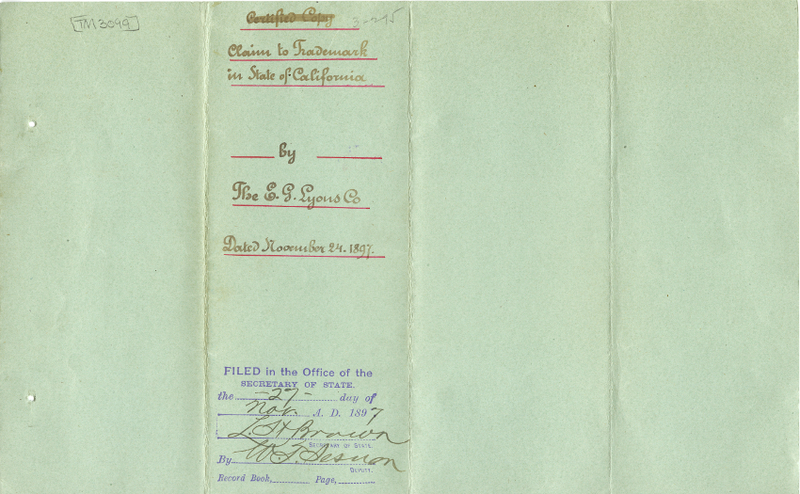 TM 3099
Certified Copy
Claim to Trademark
in State of California
by
The E. G. Lyons Co
Dated November 24. 1897.
FILED in the Office of the
SECRETARY OF STATE.
the 27 day of
Nov. A. D. 1897
L. H. Brown
SECRETARY OF STATE.
By W. T. Sesnon
DEPUTY.
Record Book, Page,